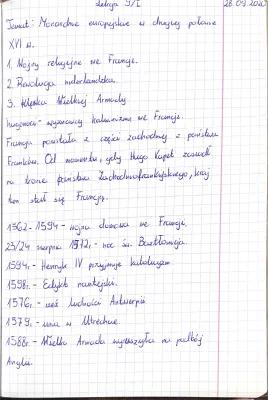 Lekcja 9/I 28.09.2020
Temat: Mocarstwa europejskie w drugiej połowie
XVI w.
1. Wojny religijne we Francji.
2. Rewolucja niderlandzka.
3. Klęska Wielkiej Armady
hugenoci - wyznawcy kalwinizmu we Francji.
Francja powstała z części zachodniej z państwa
Franków. Od momentu, gdy Hugo Kapet zasiadł
na tronie państwa Zachodniofrankijskiego, kraj
ten stał się Francją.
1562-1594 - wojna domowa we Francji.
23/24 sierpnia 1572r. - noc św. Bartłomieja.
1594r. - Henryk IV przyjmuje katolicyzm
1598r. - Edykt nantejski.
1576r. - rzeź ludności Antwerpii
1579r. - unia w Utrechcie.
1588r. - Wielka Armada wyruszyła na podbój
Anglii.